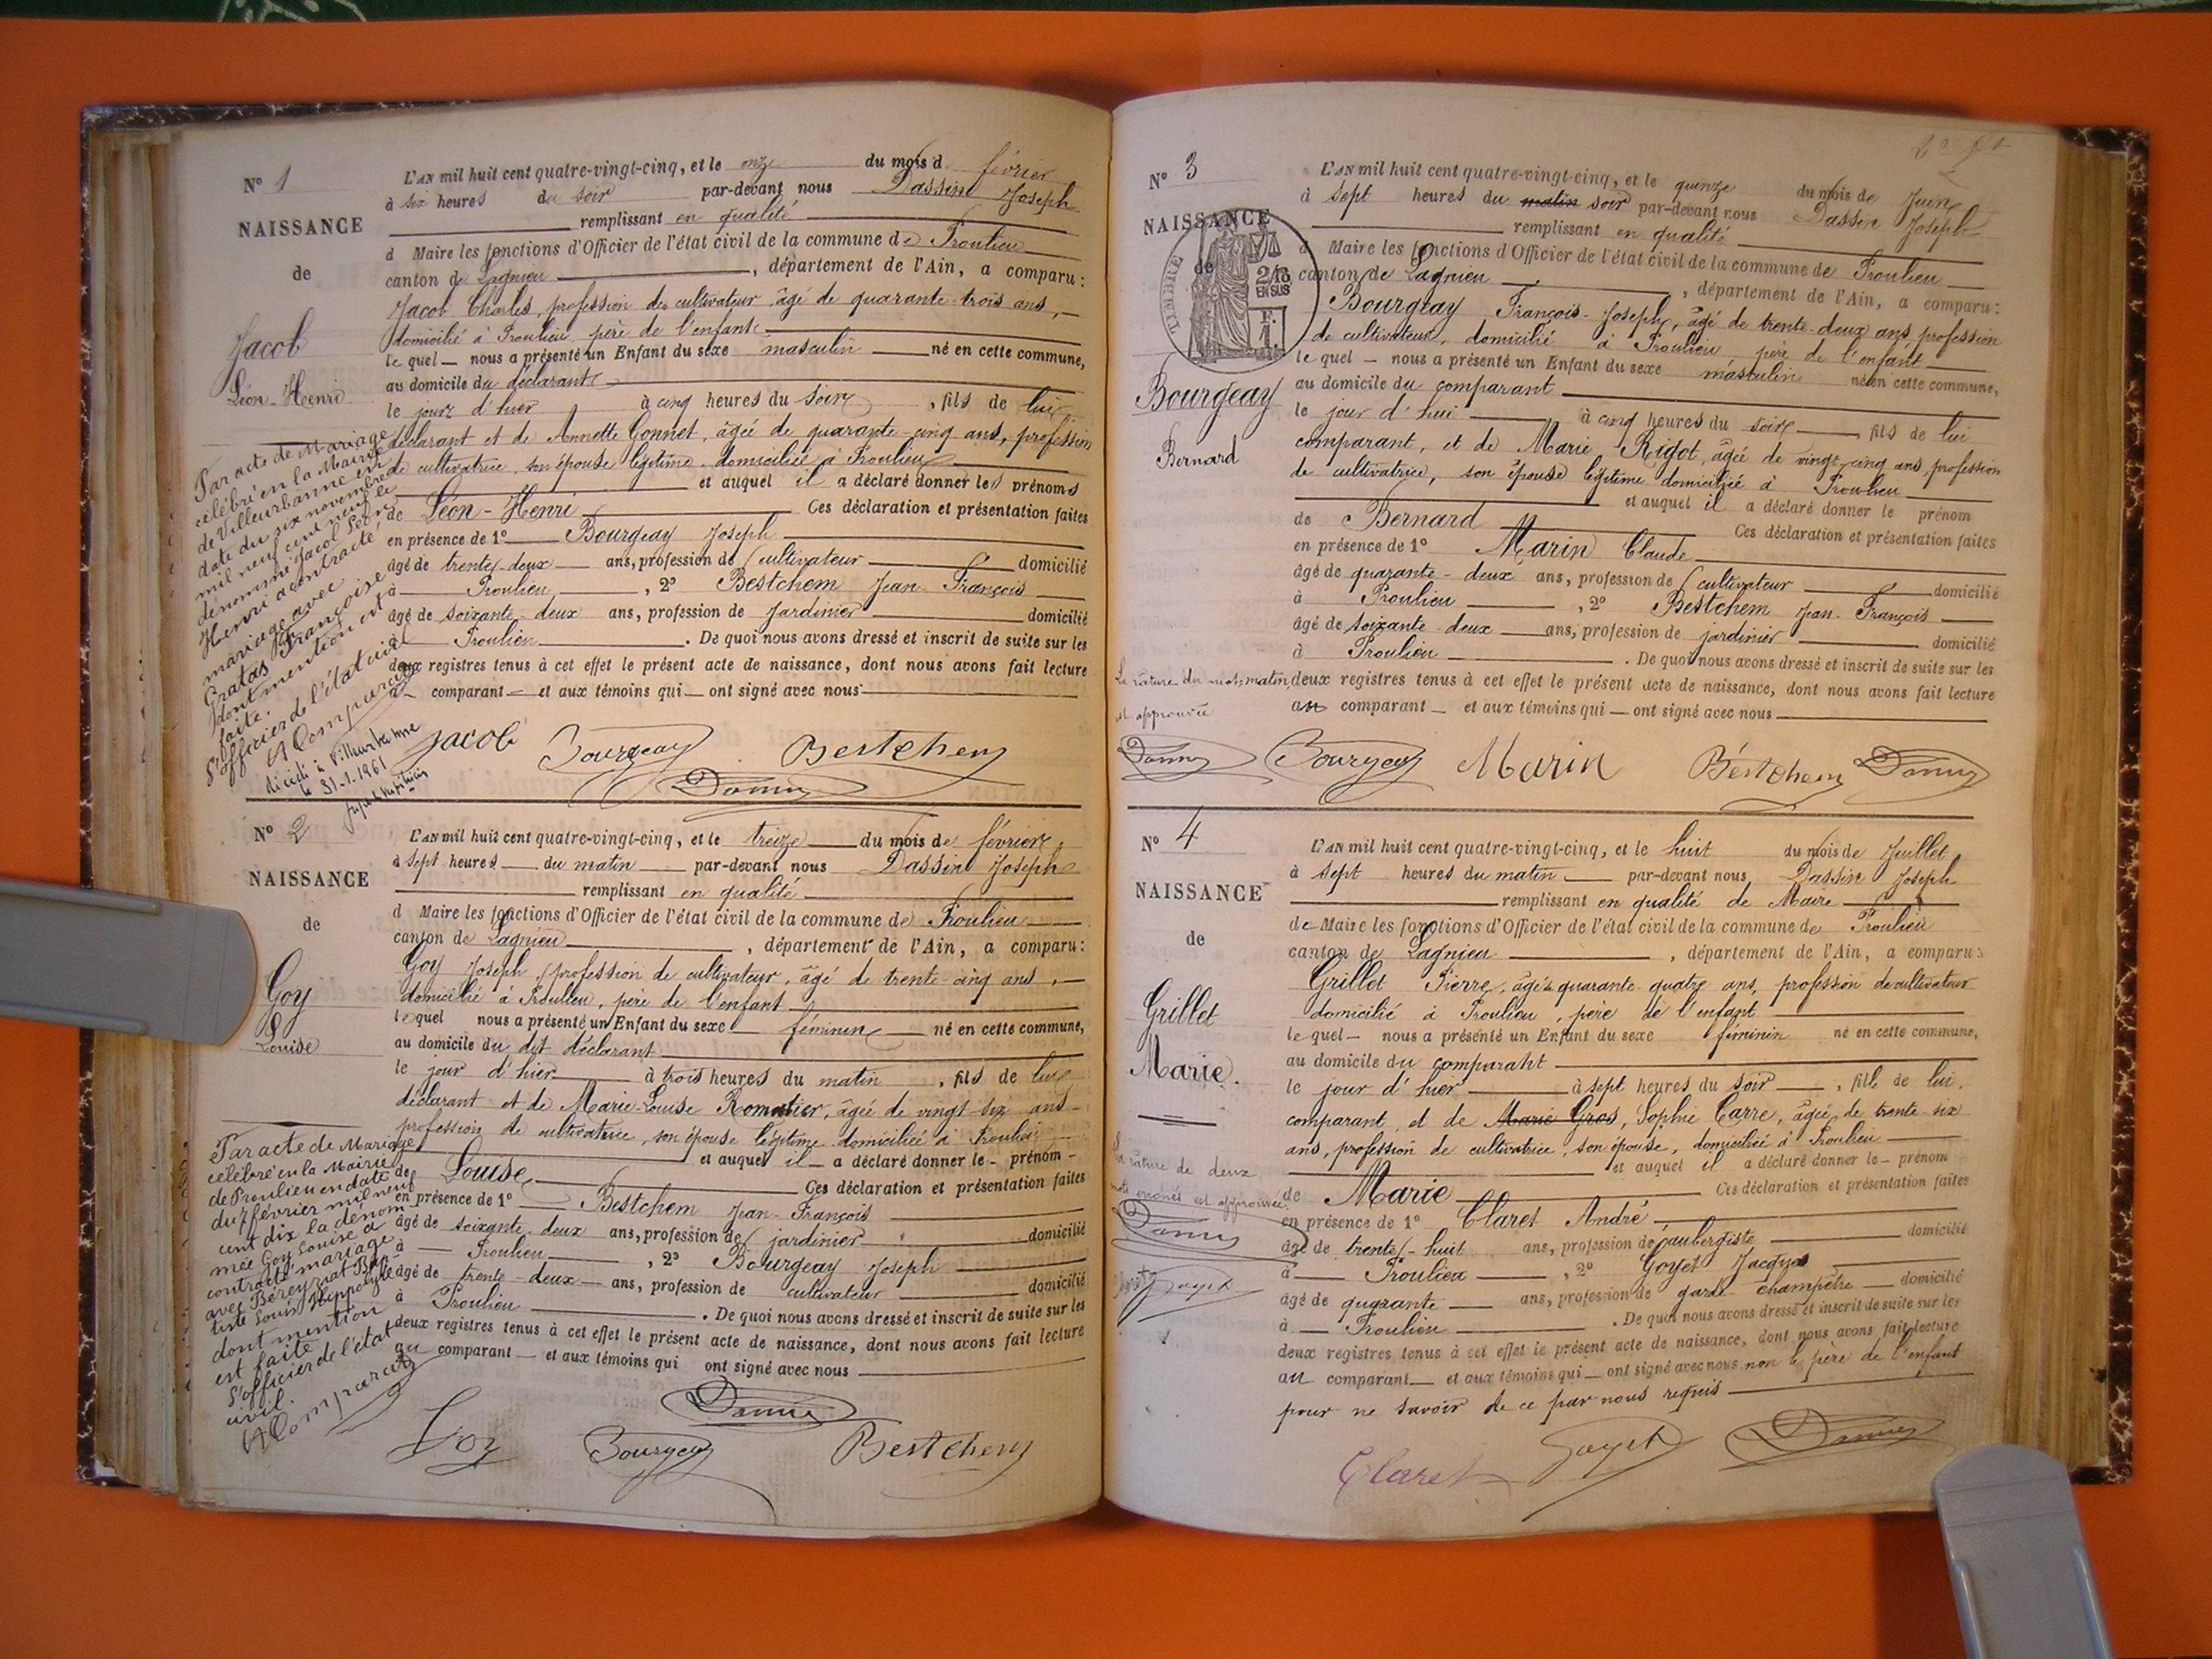 N° 1
NAISSANCE
de
Jacob
Léon-Henri
L'AN mil huit cent quatre-vingt-cinq, et le onze du mois d février
à six heures du soir par-devant nous Dassin Joseph
remplissant en qualité
d Maire les fonctions d'Officier de l'état civil de la commune de Proulieu
canton de Lagnieu, département de l'Ain, a comparu:
Jacob Charles, profession de cultivateur âgé de quarante-trois ans,
domicilié à Proulieu, père de l'enfant
le quel nous a présenté un Enfant du sexe masculin né en cette commune,
au domicile du déclarant
le jour d'hier à cinq heures du soir, fils de lui
déclarant et de Annette Gonnet, âgée de quarante-cinq ans, profession
de cultivatrice, son épouse légitime, domiciliée à Proulieu
et auquel il a déclaré donner les prénoms
de Léon-Henri Ces déclaration et présentation faites
en présence de 1° Bourgeay Joseph
âgé de trente-deux ans, profession de cultivateur domicilié
à Proulieu, 2° Bestchem Jean-François
âgé de soixante-deux ans, profession de jardinier domicilié
à Proulieu. De quoi nous avons dressé et inscrit de suite sur les
deux registres tenus à cet effet le présent acte de naissance, dont nous avons fait lecture
au comparant et aux témoins qui ont signé avec nous
Par acte de Mariage
célébré en la Mairie
de Villeurbanne en
date du six novembre
mil neuf cent neuf le
dénommé Jacob Léon
Henri a contracté
mariage avec
Gratas Françoise
dont mention est
faite.
L'officier de l'état civil
décédé à Villeurbanne
le 31.1.1961
Jacob Bourgeay Bestchem
Dassin
N° 2
NAISSANCE
de
Goy
Louise
L'AN mil huit cent quatre-vingt-cinq, et le treize du mois de février
à sept heures du matin par-devant nous Dassin Joseph
remplissant en qualité
d Maire les fonctions d'Officier de l'état civil de la commune de Proulieu
canton de Lagnieu, département de l'Ain, a comparu:
Goy Joseph, profession de cultivateur, âgé de trente-cinq ans,
domicilié à Proulieu, père de l'enfant
lequel nous a présenté un Enfant du sexe féminin né en cette commune,
au domicile du dit déclarant
le jour d'hier à trois heures du matin, fils de lui
déclarant et de Marie-Louise Romatier, âgée de vingt-six ans
profession de cultivatrice, son épouse légitime domiciliée à Proulieu
et auquel il a déclaré donner le prénom
de Louise Ces déclaration et présentation faites
en présence de 1° Bestchem Jean-François
âgé de soixante-deux ans, profession de jardinier domicilié
à Proulieu, 2° Bourgeay Joseph
âgé de trente-deux ans, profession de cultivateur domicilié
à Proulieu. De quoi nous avons dressé et inscrit de suite sur les
deux registres tenus à cet effet le présent acte de naissance, dont nous avons fait lecture
au comparant et aux témoins qui ont signé avec nous
Par acte de Mariage
célébré en la Mairie
de Proulieu en date
du 7 février mil neuf
cent dix la dénom-
mée Goy Louise a
contracté mariage
avec Béreyziat Bap-
tiste Louis Hippolyte
dont mention
est faite
L'officier de l'état
civil.
Dassin
Goy Bourgeay Bestchem
N° 3
NAISSANCE
de
TIMBRE
2/10
EN SUS
F.
1.
Bourgeay
Bernard
L'AN mil huit cent quatre-vingt-cinq, et le quinze du mois de Juin
à sept heures du matin soir par-devant nous Dassin Joseph
remplissant en qualité
d Maire les fonctions d'Officier de l'état civil de la commune de Proulieu
canton de Lagnieu, département de l'Ain, a comparu:
Bourgeay François-Joseph, âgé de trente-deux ans, profession
de cultivateur, domicilié à Proulieu, père de l'enfant
le quel nous a présenté un Enfant du sexe masculin né en cette commune,
au domicile du comparant
le jour d'hui à cinq heures du soir fils de lui
comparant, et de Marie Rigot, âgée de vingt-cinq ans, profession
de cultivatrice, son épouse légitime domiciliée à Proulieu
et auquel il a déclaré donner le prénom
de Bernard Ces déclaration et présentation faites
en présence de 1° Marin Claude
âgé de quarante-deux ans, profession de cultivateur domicilié
à Proulieu, 2° Bestchem Jean-François
âgé de soixante-deux ans, profession de jardinier domicilié
à Proulieu. De quoi nous avons dressé et inscrit de suite sur les
deux registres tenus à cet effet le présent acte de naissance, dont nous avons fait lecture
au comparant et aux témoins qui ont signé avec nous
La rature du mot matin
est approuvée
Dassin Bourgeay Marin Bestchem Dassin
N° 4
NAISSANCE
de
Grillet
Marie.
L'AN mil huit cent quatre-vingt-cinq, et le huit du mois de Juillet
à sept heures du matin par-devant nous Dassin Joseph
remplissant en qualité de Maire
de Maire les fonctions d'Officier de l'état civil de la commune de Proulieu
canton de Lagnieu, département de l'Ain, a comparu:
Grillet Pierre, âgé de quarante-quatre ans, profession de cultivateur
domicilié à Proulieu, père de l'enfant
le quel nous a présenté un Enfant du sexe féminin né en cette commune,
au domicile du comparant
le jour d'hier à sept heures du soir, fille de lui,
comparant, et de Marie Gros, Sophie Carre, âgée de trente-six
ans, profession de cultivatrice, son épouse, domiciliée à Proulieu
et auquel il a déclaré donner le prénom
de Marie Ces déclaration et présentation faites
en présence de 1° Claret André
âgé de trente-huit ans, profession de aubergiste domicilié
à Proulieu, 2° Goyet Jacques
âgé de quarante ans, profession de garde-champêtre domicilié
à Proulieu. De quoi nous avons dressé et inscrit de suite sur les
deux registres tenus à cet effet le présent acte de naissance, dont nous avons fait lecture
au comparant et aux témoins qui ont signé avec nous non le père de l'enfant
pour ne savoir de ce par nous requis
La rature de deux
mots erronés est approuvée
Dassin
Goyet
Claret Goyet Dassin